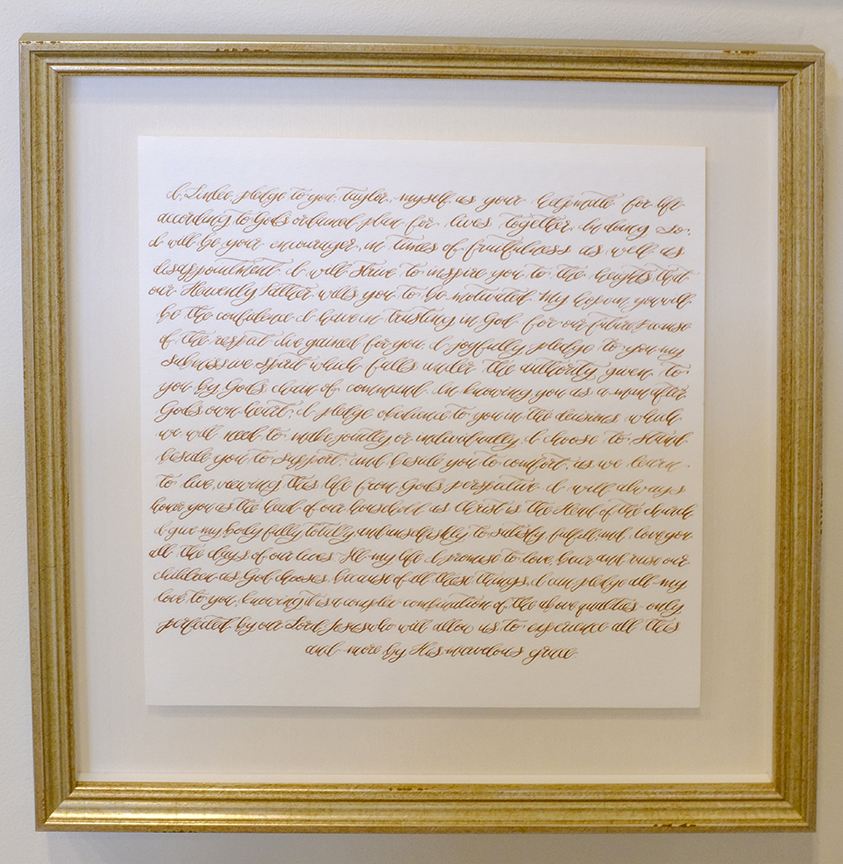 I, Linda, pledge to you, Taylor, myself as your helpmate for life
according to God's ordained plan for lives together. In doing so,
I will be your encourager in times of fruitfulness as well as
disappointment. I will strive to inspire you to the heights that
our Heavenly Father wills you to be motivated. My hope in you will
be the confidence I have in trusting in God for our future because
of the respect I've gained for you. I joyfully pledge to you my
submissive spirit which falls under the authority given to
you by God's chain of command. In knowing you as a man after
God's own heart, I pledge obedience to you in the decisions which
we will need to make jointly or individually. I choose to stand
beside you to support, and beside you to comfort, as we learn
to live, viewing this life from God's perspective. I will always
honor you as the head of our household as Christ is the Head of the church.
I give my body fully, totally, and unselfishly to satisfy, fulfill, and love you
all the days of our lives. All my life I promise to love, bear and raise our
children as God chooses. Because of all these things, I can pledge all my
love to you, knowing it is a complex combination of the above qualities - only
perfected by our Lord Jesus who will allow us to experience all this
and more by His marvelous grace.